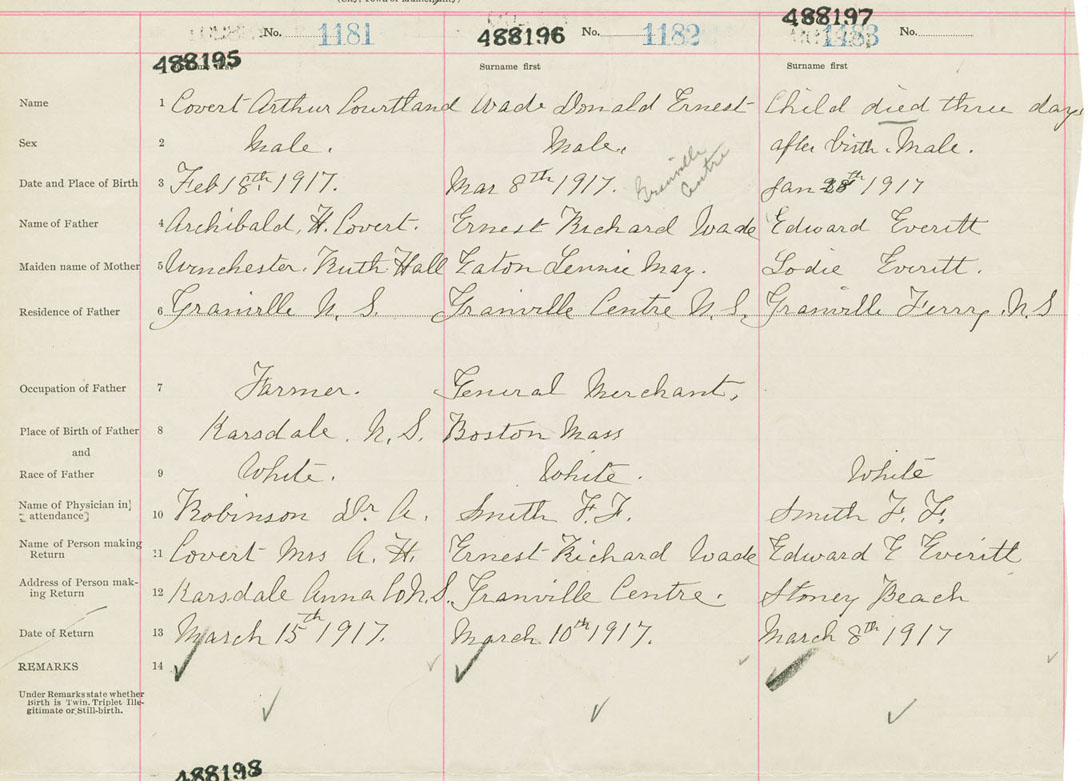 (City, Town or Municipality)
No. 1181 488196 No. 1182 488197 1183 No.
488195
Surname first Surname first
Name 1 Covert Arthur Courtland Wade Donald Ernest Child died three days
Sex 2 Male. Male. after birth. Male.
Granville Centre
Date and Place of Birth 3 Feb 18th 1917. Mar 8th 1917. Jan 28th 1917
Name of Father 4 Archibald, H. Covert. Ernest Richard Wade Edward Everitt
Maiden name of Mother 5 Winchester. Ruth Hall Eaton Lennie May. Sodie Everitt.
Residence of Father 6 Granville N. S. Granville Centre N. S. Granville Ferry. N. S
Occupation of Father 7 Farmer. General Merchant,
Place of Birth of Father 8 Karsdale. N. S. Boston Mass
and
Race of Father 9 White. White. White
Name of Physician in]
[attendance] 10 Robinson Dr A. Smith F. F. Smith F. F.
Name of Person making
Return 11 Covert Mrs A. H. Ernest Richard Wade Edward E Everitt
Address of Person mak-
ing Return 12 Karsdale Anna Co N. S. Granville Centre. Stoney Beach
Date of Return 13 March 15th 1917. March 10th 1917. March 8th 1917
REMARKS 14
Under Remarks state whether
Birth is Twin. Triplet Ille-
gitimate or Still-birth.
488198